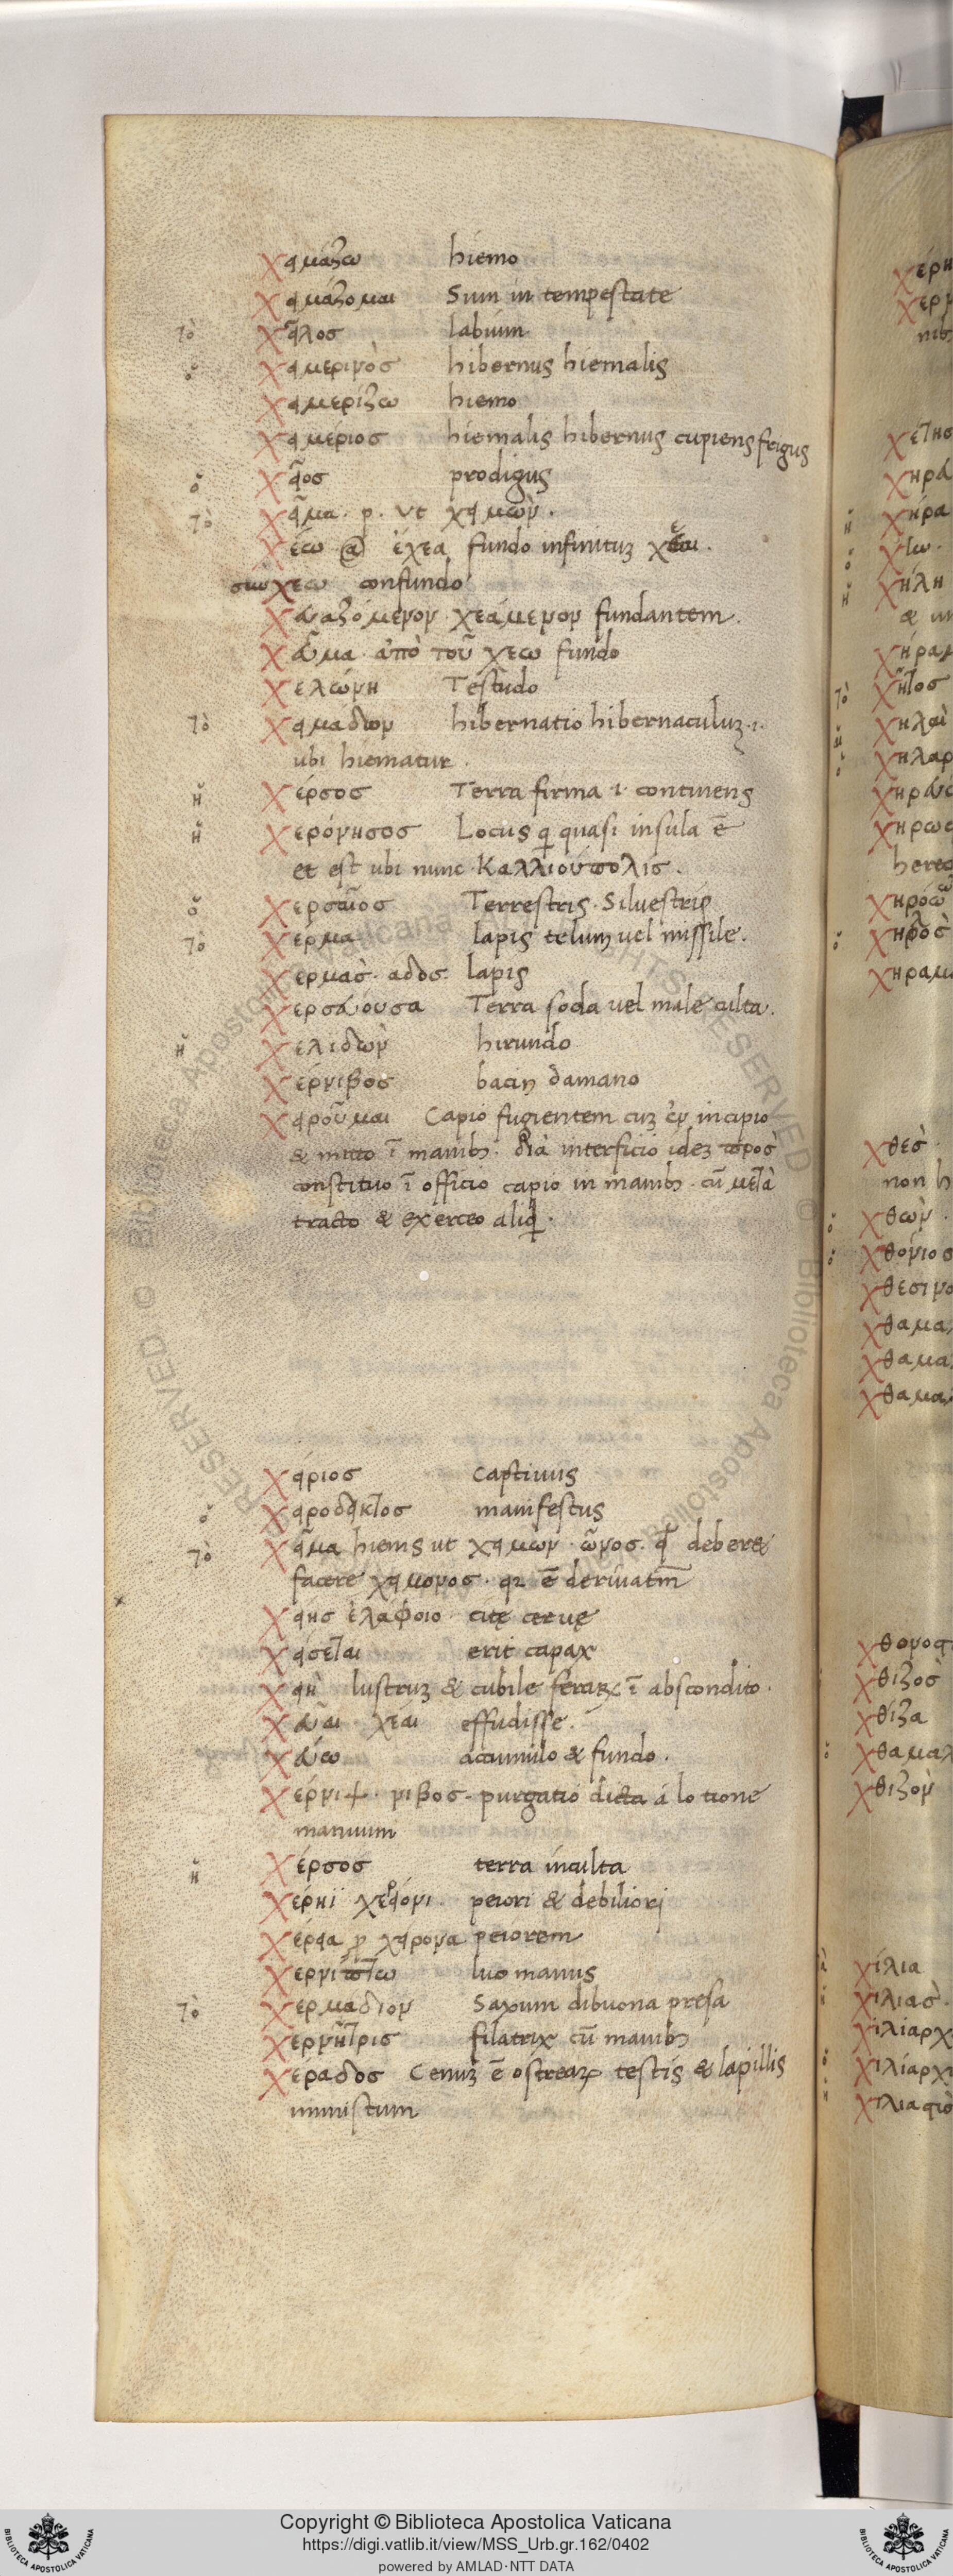 χειμάζω hiemo
χειμάζομαι Sum in tempestate
τὸ χεῖλος labium
ὁ χειμερινὸσ hibernus hiemalis
χειμερίζω hiemo
χειμέριοσ hiemalis hibernus cupiens frigus
ὁ χεῖοσ prodigus
τὸ χεῖμα. p. ut χειμὼν.
χέω @ ἔχεα fundo infinituȝ
συνχεω confundo
χεναζόμενον χεάμενον fundantem.
χεῦμα ἀπὸ τοῦ χεω fundo
χελώνη Testudo
τὸ χειμαδιον hibernatio hibernaculuȝ .i.
ubi hiematur.
ἡ χέρσος Terra firma .i. continens
ἡ χερόνησος Locus q quasi insula ē
et est ubi nunc Καλλιούπολισ.
ὁ χερσαῖος Terrestris. Silvestris
τὸ χερμα lapis telum vel missile.
χερμασ. αδοσ lapis
χερσεύουσα Terra soda vel male culta.
ἡ χελιδὼν hirundo
χέρνιβοσ bacin damano
χειροῦμαι Capio fugientem cuȝ ἐν incipio
& mitto ī manibȝ. διὰ interficio ideȝ πρoσ
constituo ī officio capio in manibȝ. cū μετὰ
tracto & exerceo aliqd.
χείριοσ captiuus
ὁ χειροδεικτοσ manifestus
τὸ χεῖμα hiems ut χειμὼν. ῶνοσ. debere
facere χειμονοσ. qz ē derivatm̄
χειησ ἐλαφοιο. citę cervę
χείσεται erit capax
χειὴ lustruȝ & cubile ferarȝ ī abscondito.
χεῦαι χέαι effudisse.
χεύω accumulo & fundo.
χέρνιψ. νιβοσ. purgatio dicta á lotione
manuum
ἡ χέρσοσ terra inculta
χέρηϊ χειρόνι. peiori & debiliori
χέρεια p χείρονα peiorem
χερνίπτω luo manus
τὸ χερμαδιον Saxum dibuona presa
χερνῆτρισ filatrix cū manibȝ
χεραδοσ Cenuȝ ē ostrearȝ testis & lapillis
immistum
Copyright © Biblioteca Apostolica Vaticana
https://digi.vatlib.it/view/MSS_Urb.gr.162/0402
powered by AMLAD·NTT DATA